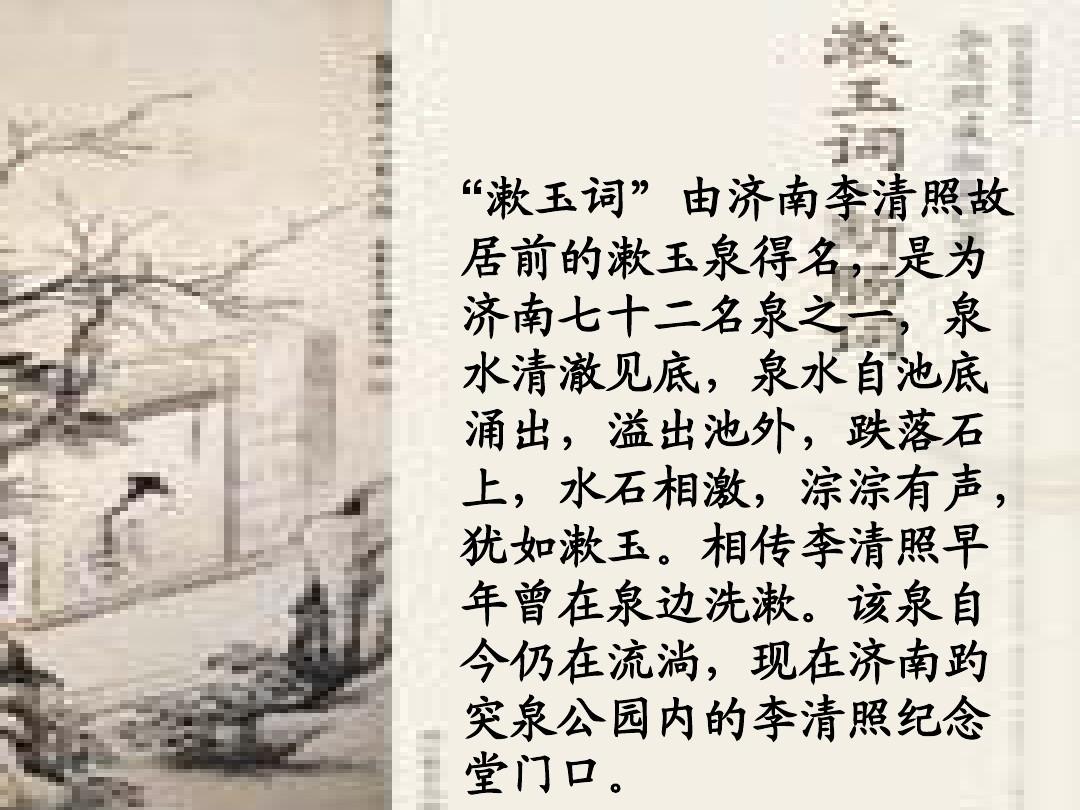 漱玉词
“漱玉词”由济南李清照故
居前的漱玉泉得名，是为
济南七十二名泉之一，泉
水清澈见底，泉水自池底
涌出，溢出池外，跌落石
上，水石相激，淙淙有声，
犹如漱玉。相传李清照早
年曾在泉边洗漱。该泉自
今仍在流淌，现在济南趵
突泉公园内的李清照纪念
堂门口。